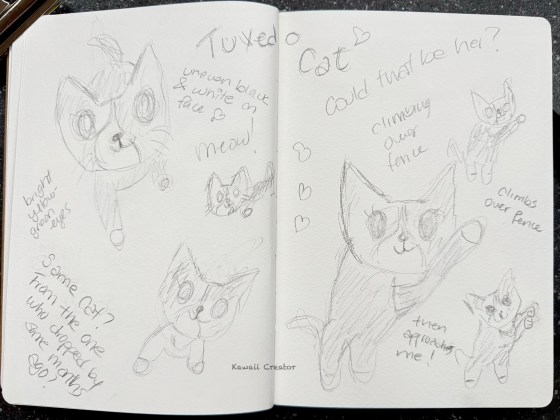 Tuxedo
Cat
uneven black
& white on
face
meow!
bright
yellow-
green
eyes
Same cat?
From the one
who dropped by
some months
ago?
Could that be her?
climbing
over
fence
climbs
over fence
then
approaching
me!
Kawaii Creator